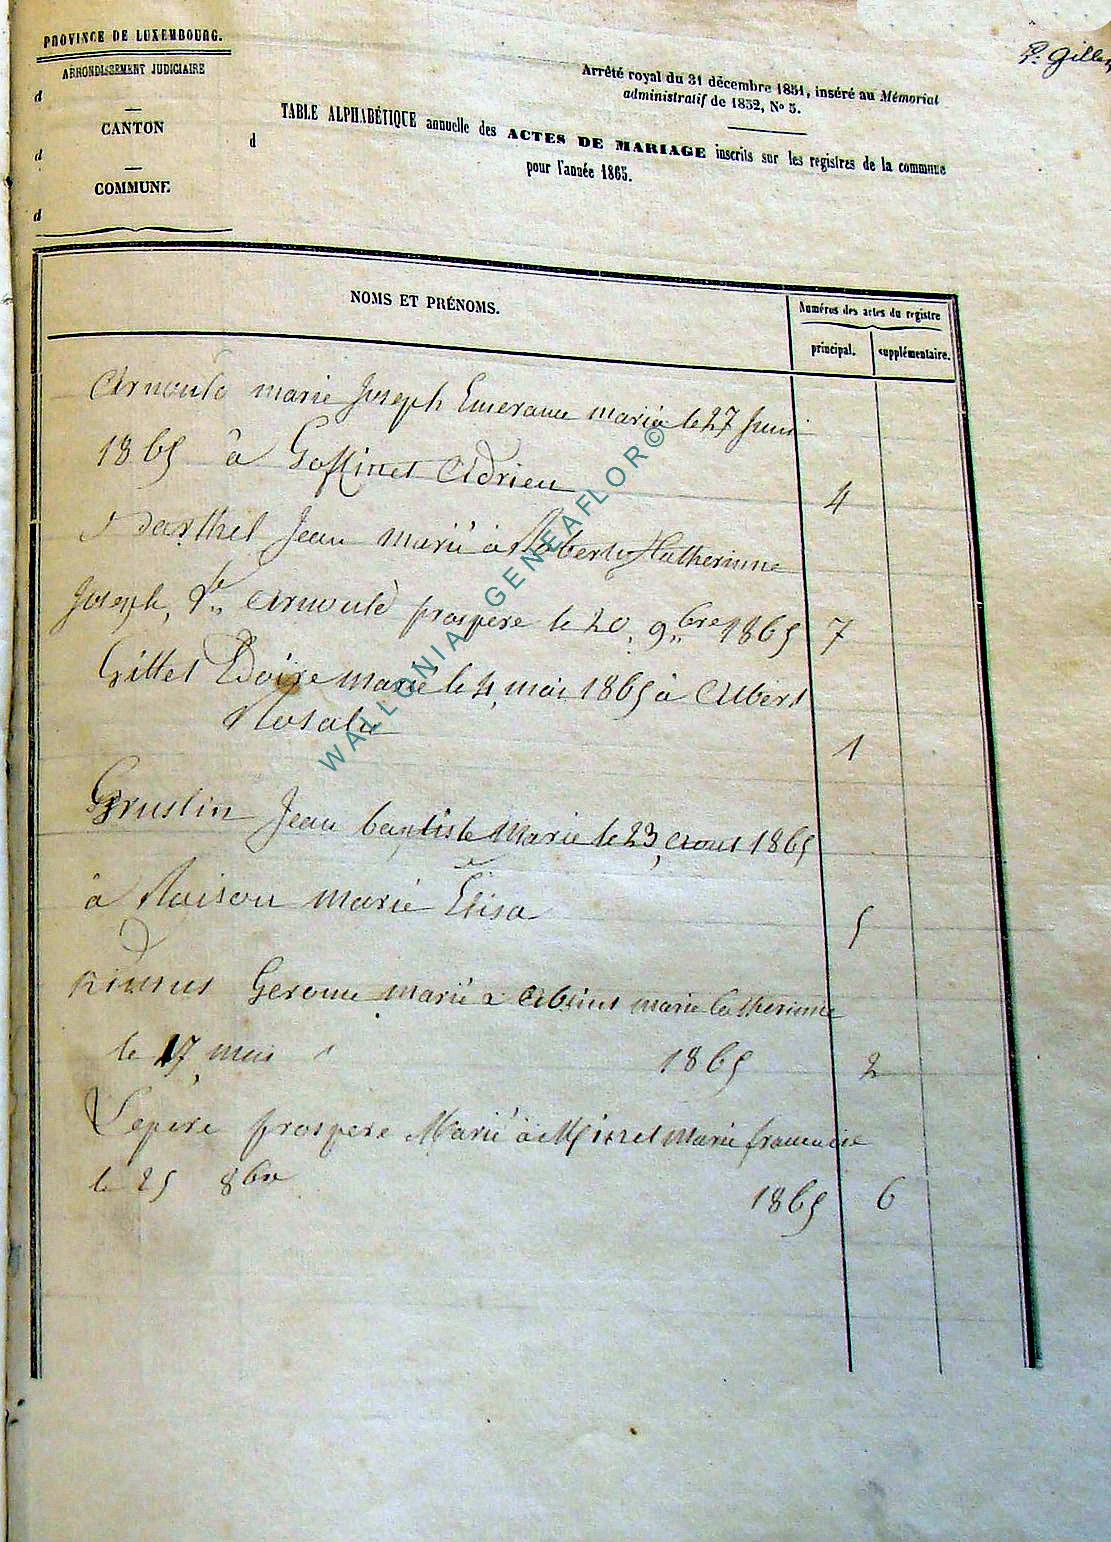 PROVINCE DE LUXEMBOURG.
ARRONDISSEMENT JUDICIAIRE
d
CANTON
d
COMMUNE
d
P. Gilles
Arrêté royal du 31 décembre 1851, inséré au Mémorial
administratif de 1852, No 5.
TABLE ALPHABÉTIQUE annuelle des ACTES DE MARIAGE inscrits sur les registres de la commune
d
pour l'année 1865.
NOMS ET PRÉNOMS.
Numéros des actes du registre
principal.
supplémentaire.
Arnould marie Joseph Emerance mariée le 27 Juin
1865 à Goffinet Adrien
4
Barthel Jean marié à Robert Catherinne
Joseph, Ve Arnould prospere le 20, 9bre 1865
7
Gillet marié le 4, mai 1865 à Albert
Rosalie
1
Gruslin Jean baptiste Marié le 23, aout 1865
à Raison marie Elisa
5
Gerome marié a marie Catherinne
le 17, mai 1865
2
Lepere prospere Marié à Minet Marie francoise
le 25 8bre 1865
6
WALLONIA GENEAFLOR©